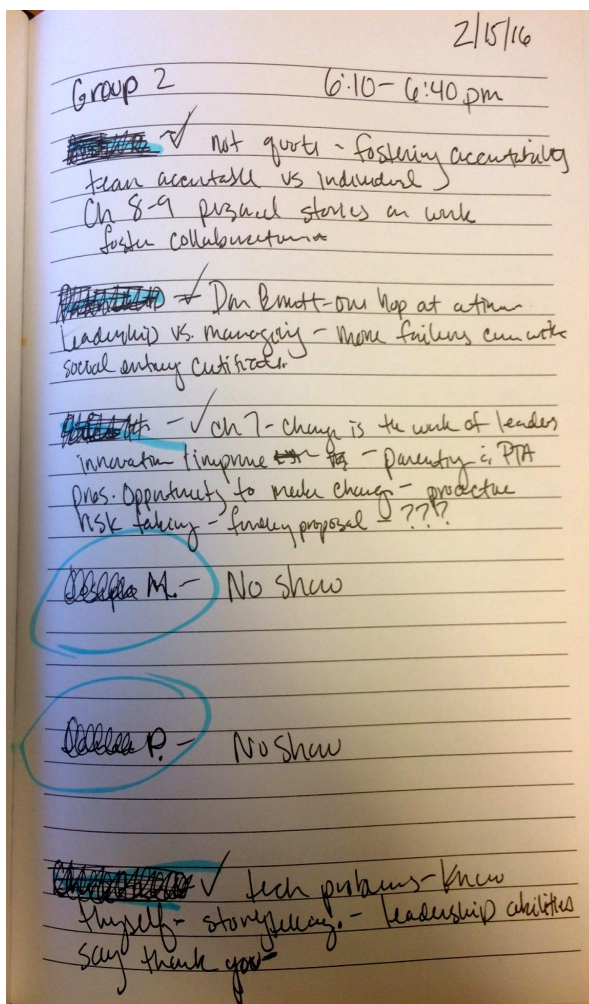 2/15/16
Group 2 6:10-6:40 pm
✓ not quote - fostering accountability
team accountable vs individual
Ch 8-9 personal stories on work
foster collaboration
Dan - one hop at a time
leadership vs. managing - more failures
social
- ✓ ch 7 - change is the work of leaders
innovation improve - parenting PTA
pres. Opportunity to make change - proactive
risk taking - proposal - ???
M. - No show
P. - No show
✓ tech problems - Know
thyself - storytelling. - leadership abilities
say thank you -